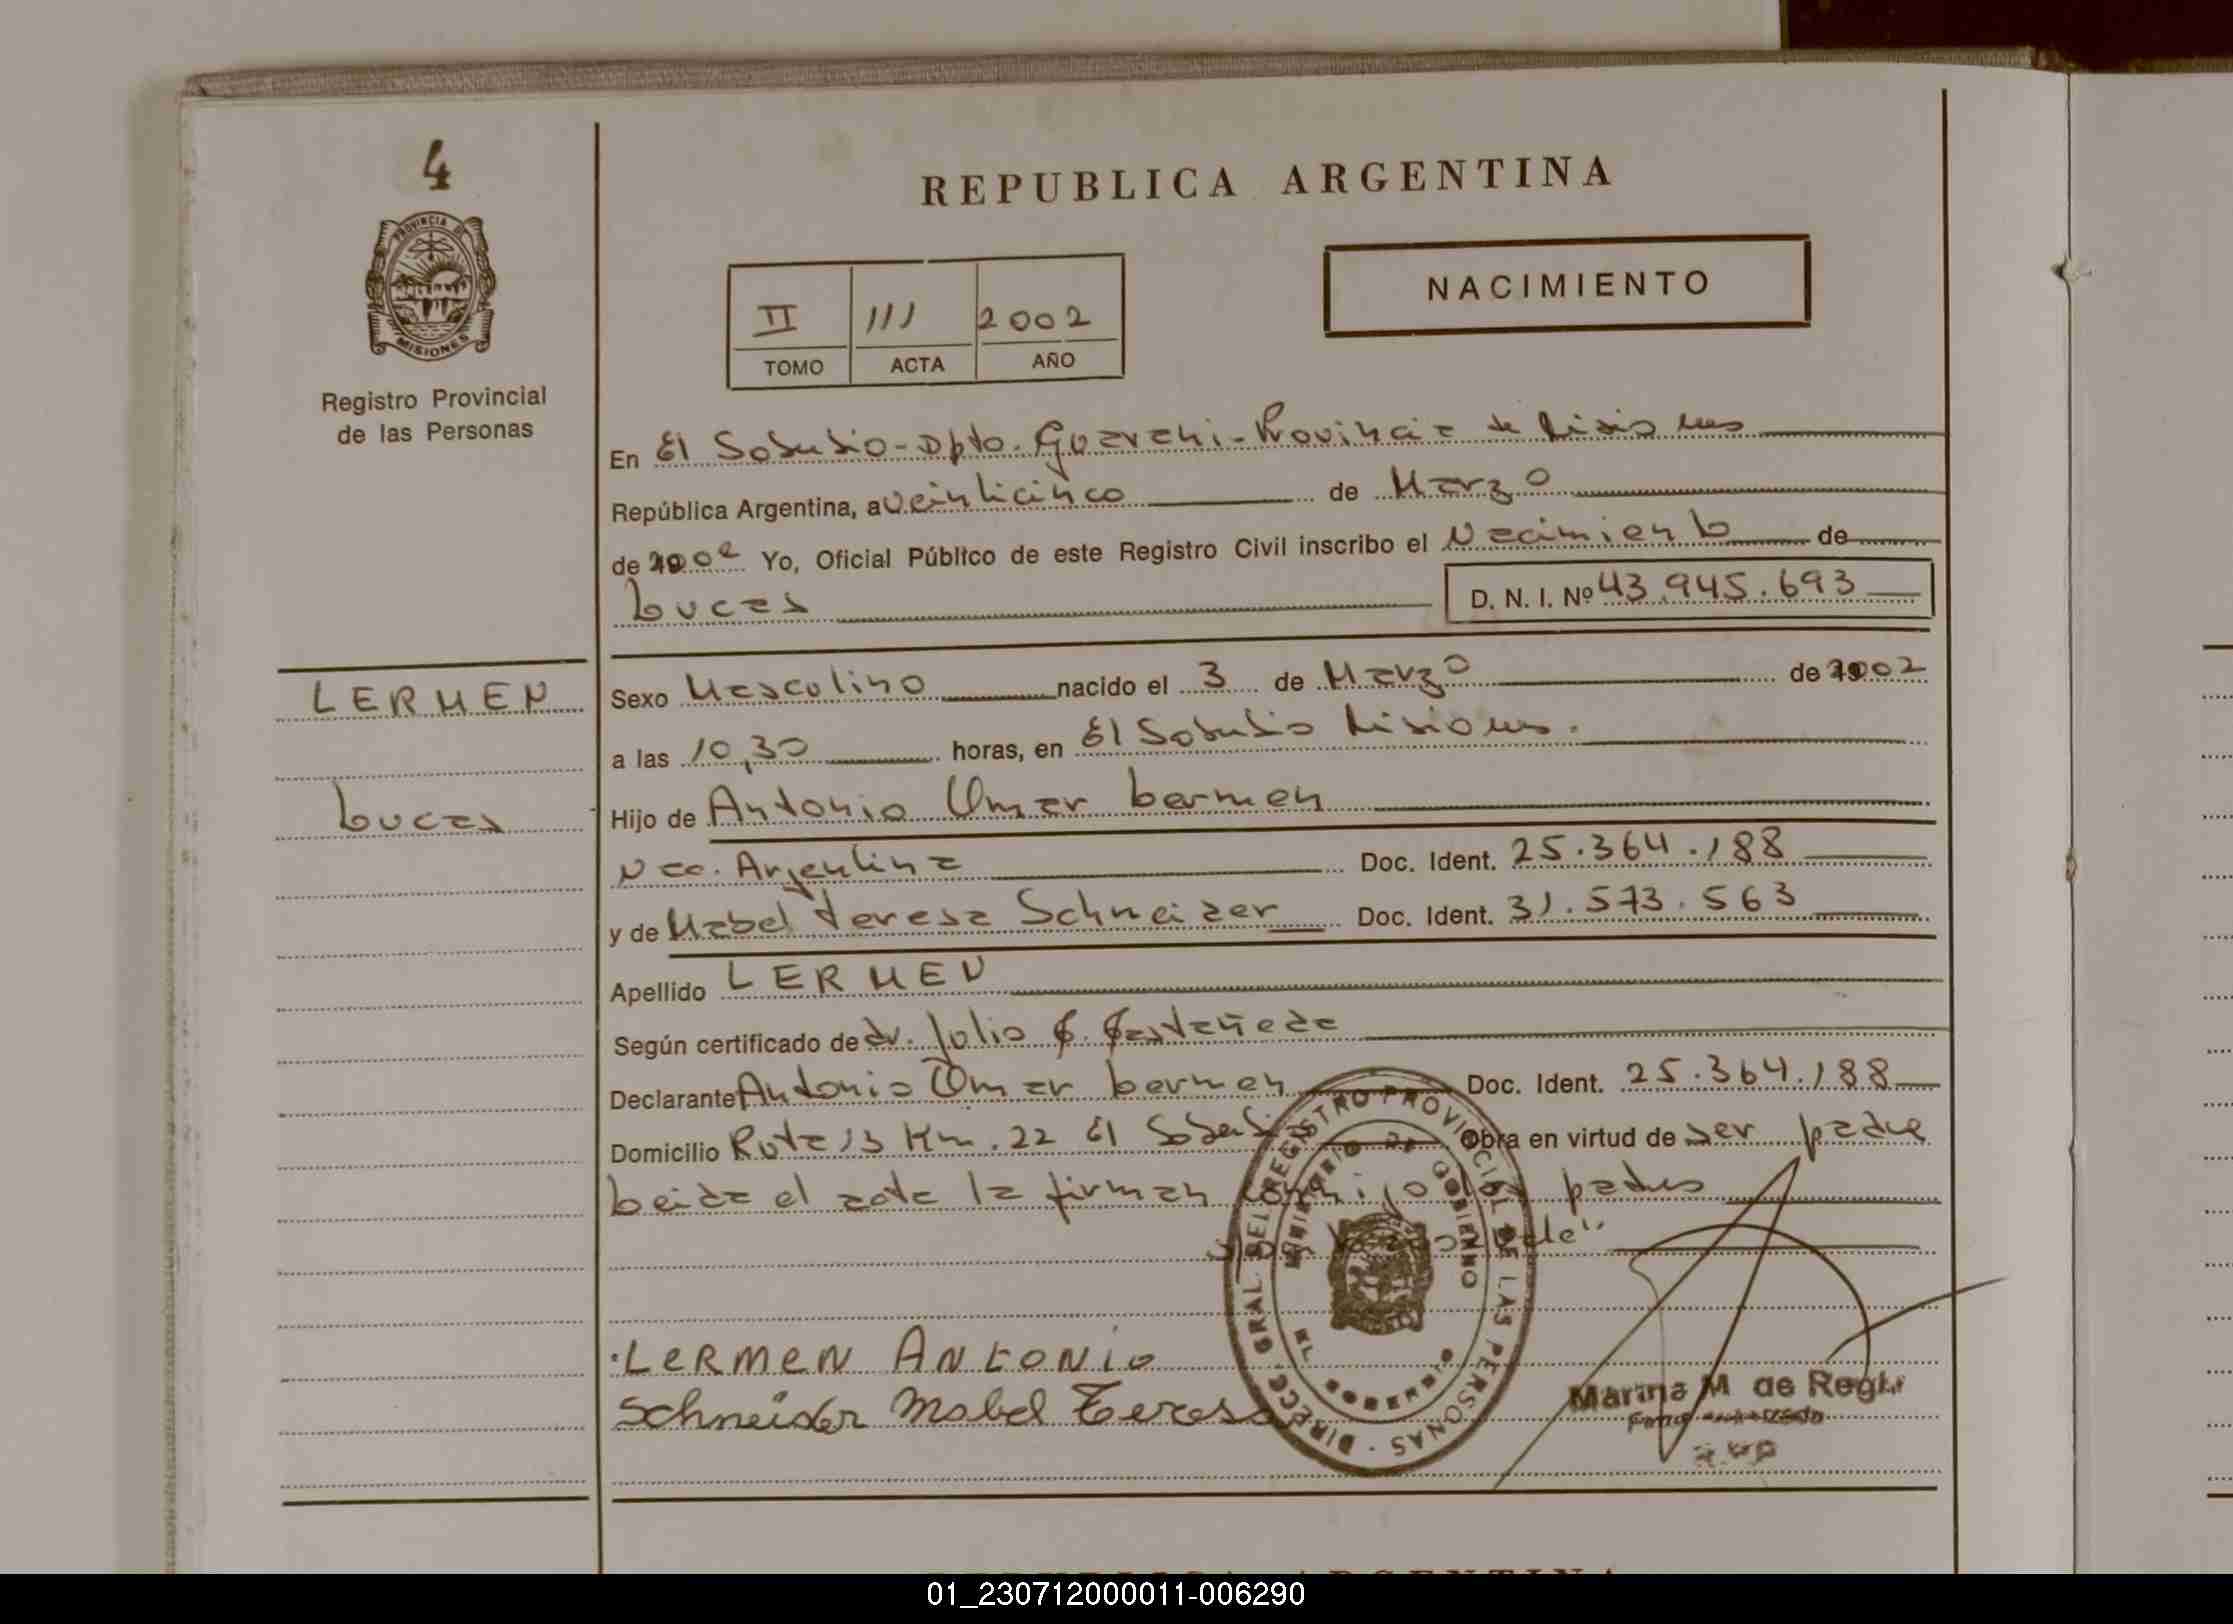 4
REPUBLICA ARGENTINA
PROVINCIA DE
MISIONES
Registro Provincial
de las Personas
NACIMIENTO
II 111 2002
TOMO ACTA AÑO
En El Soberbio-Dpto. Guarani-Provincia de Misiones
República Argentina, a veinticinco de Marzo
de 2002 Yo, Oficial Público de este Registro Civil inscribo el Nacimiento de
Lucas D. N. I. Nº 43.945.693
LERMEN
Sexo Masculino nacido el 3 de Marzo de 2002
a las 10,30 horas, en El Soberbio Misiones.
Lucas
Hijo de Antonio Omar Lermen
Nac. Argentina Doc. Ident. 25.364.188
y de Mabel Teresa Schneider Doc. Ident. 31.573.563
Apellido LERMEN
Según certificado de dr. Julio C. Castañeda
Declarante Antonio Omar Lermen Doc. Ident. 25.364.188
Domicilio Ruta 13 Km. 22 El Soberbio Obra en virtud de ser padre
Leida el acta la firman conmigo los padres
vale"
LERMEN ANTONIO
Schneider Mabel Teresa
DIRECC. GRAL. DEL REGISTRO PROVINCIAL DE LAS PERSONAS
MINISTERIO DE GOBIERNO
EL SOBERBIO
Marina M de Regl
01_230712000011-006290